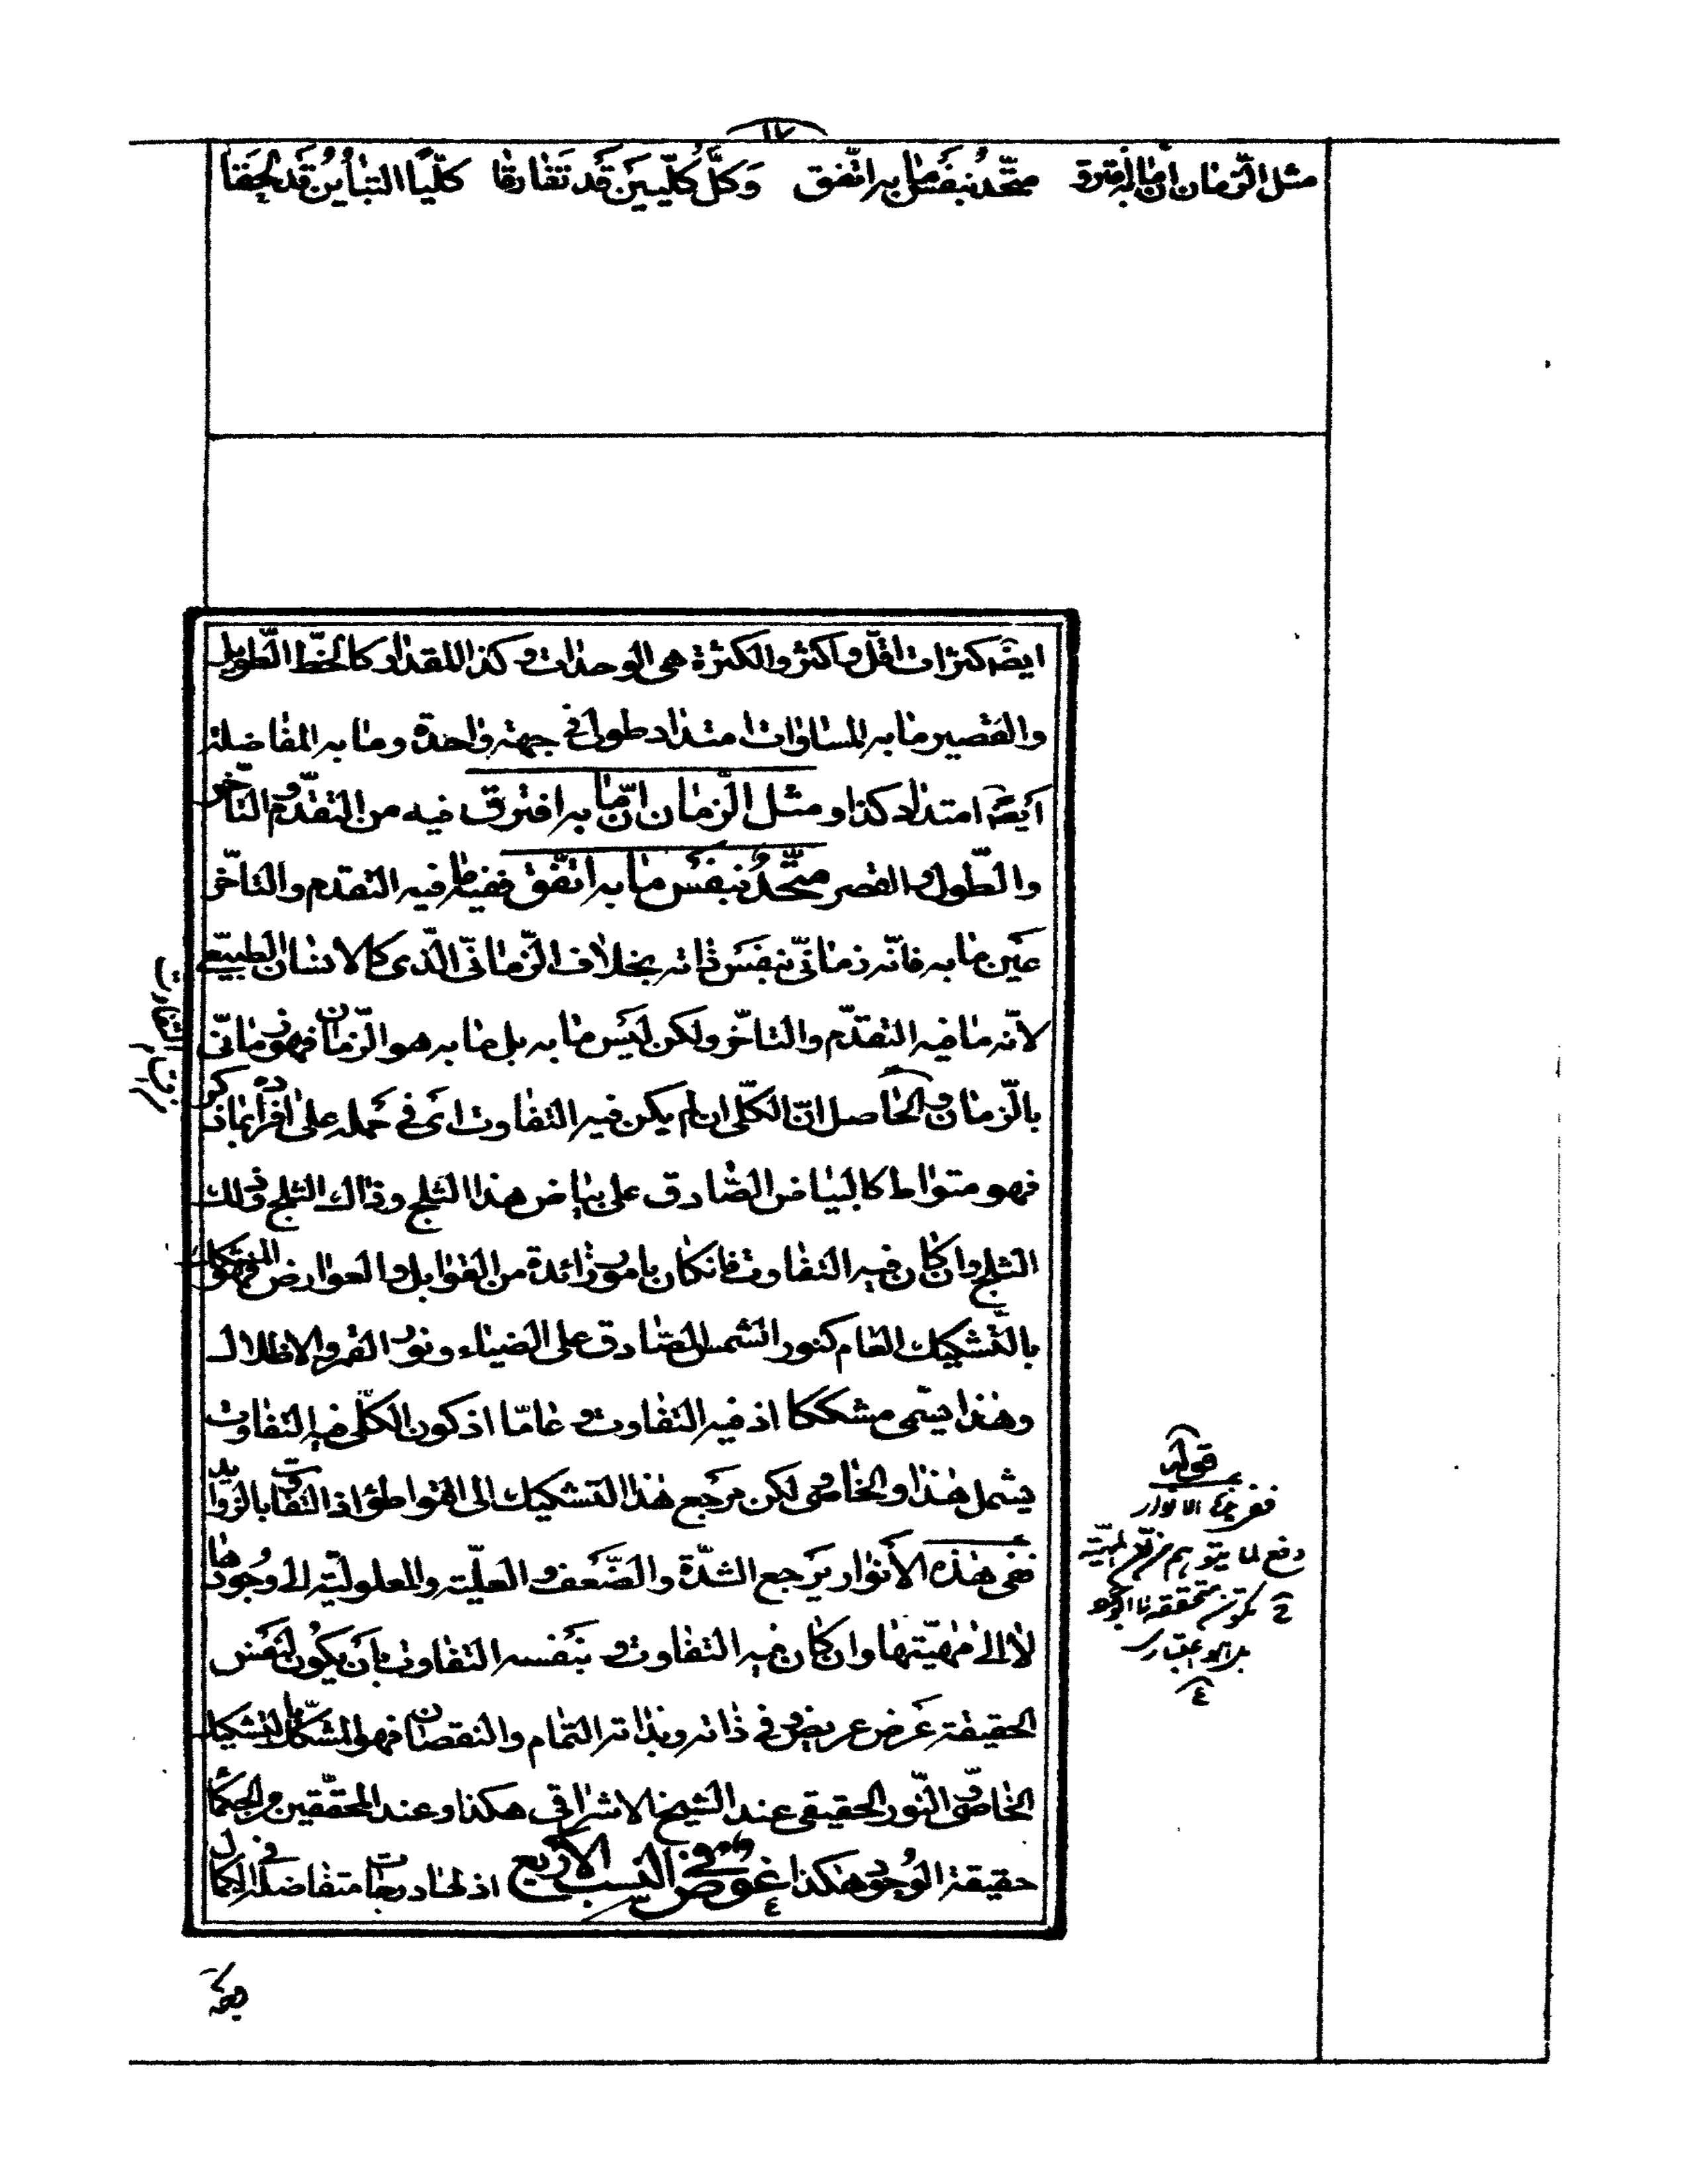 ١٧
مثل الزّمان انّ ما به افترق متّحدٌ بنفس ما به اتّفق وكلّ كلّيين قد تفارقا كلّيّا التباين قد لحقا
ايضاً كثرات اقلّ واكثر والكثرة هى الوحدات وكذا المقدار كالخطّ الطويل
والقصير ما به المساوات امتداد طولى فى جهة واحدة وما به المفاضلة
ايضاً امتداد كذا ومثل الزّمان انّ ما به افترق فيه من التقدّم والتأخّر
والطّول والقصر متّحدٌ بنفس ما به اتّفق ففيه ما فيه التقدم والتأخّر
عين ما به فانّه زمانىّ بنفس ذاته بخلاف الزّمانىّ الّذى كالانسان الطبيعى
لانّه ما فيه التقدّم والتأخّر ولكن ليس ما به بل ما به هو الزّمان فهو زمانىّ
بالزّمان والحاصل انّ الكلّى ان لم يكن فيه التفاوت اى فى حمله على افراده
فهو متواط كالبياض الصّادق على بياض هذا الثلج وذاك الثلج وذلك
الثلج وان كان فيه التفاوت فان كان بامور زائدة من القوابل والعوارض فهو المشكّك
بالتّشكيك العام كنور الشمس الصّادق على الضياء ونور القمر والاظلال
وهذا يسمّى مشككا اذ فيه التفاوت وعامّا اذ كون الكلّى فيه التفاوت
يشمل هذا والخاصّى لكن مرجع هذا التشكيك الى المتواطؤ اذ التفاوت بالزوايد
ففى هذه الأنوار يرجع الشدّة والضّعف والعلّية والمعلوليّة الى وجودها
لا الى مهيّتها وان كان فيه التفاوت وبنفسه التفاوت بأن يكون لنفس
الحقيقة عرض عريض وفى ذاته وبذاته التمام والنقصان فهو المشكّك بالتشكيك
الخاصّى والنّور الحقيقى عند الشيخ الاشراقى هكذا وعند المحقّقين من الحكماء
حقيقة الوجود هكذا غوص فى النسب الأربع اذ لها درجات متفاضلة فى الكمال
قوله
ففى هذه الانوار
دفع لما يتوهم